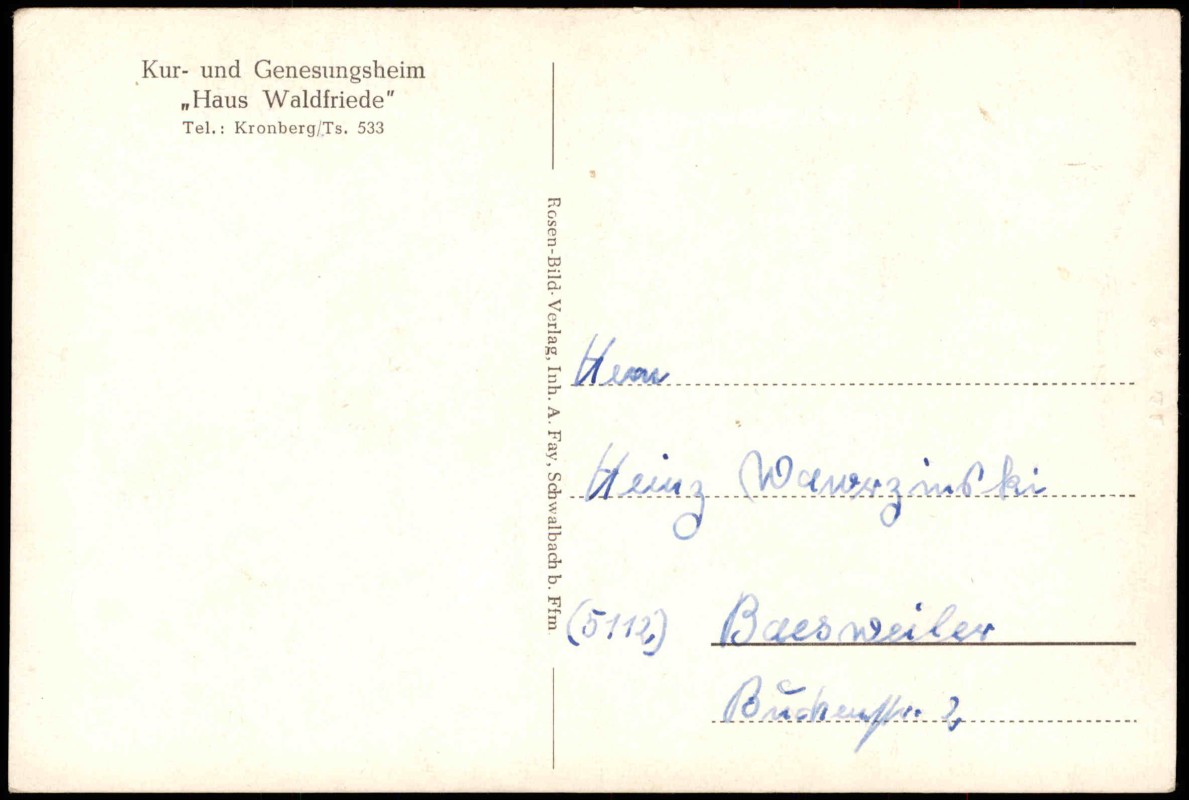 Kur- und Genesungsheim
„Haus Waldfriede"
Tel.: Kronberg/Ts. 533
Rosen-Bild-Verlag, Inh. A. Fay, Schwalbach b. Ffm
Herrn
Heinz Wawrzinski
(5112) Baesweiler
Buchenstr. 2